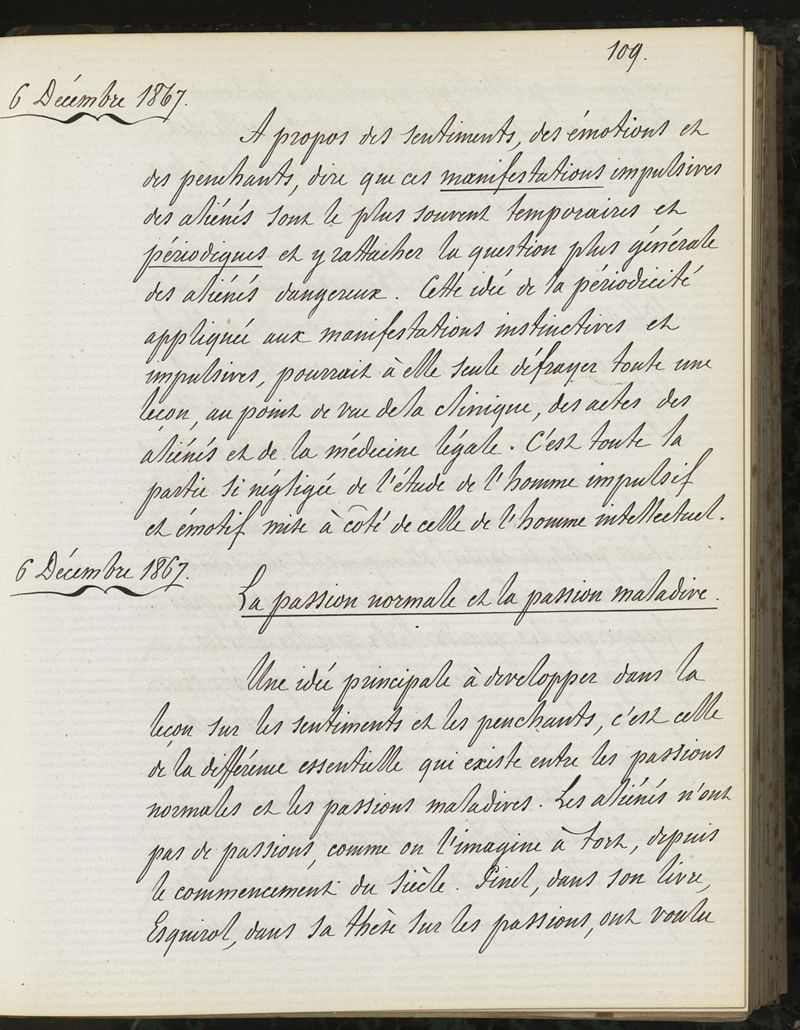 109.
6 Décembre 1867.
A propos des sentiments, des émotions et
des penchants, dire que ces manifestations impulsives
des aliénés sont le plus souvent temporaires et
périodiques et y rattacher la question plus générale
des aliénés dangereux. Cette idée de la périodicité
appliquée aux manifestations instinctives et
impulsives, pourrait à elle seule défrayer toute une
leçon, au point de vue de la clinique, des actes des
aliénés et de la médecine légale. C'est toute la
partie si négligée de l'étude de l'homme impulsif
et émotif mise à côté de celle de l'homme intellectuel.
6 Décembre 1867.
La passion normale et la passion maladive.
Une idée principale à developper dans la
leçon sur les sentiments et les penchants, c'est celle
de la différence essentielle qui existe entre les passions
normales et les passions maladives. Les aliénés n'ont
pas de passions, comme on l'imagine à tort, depuis
le commencement du siècle. Pinel, dans son livre,
Esquirol, dans sa thèse sur les passions, ont voulu